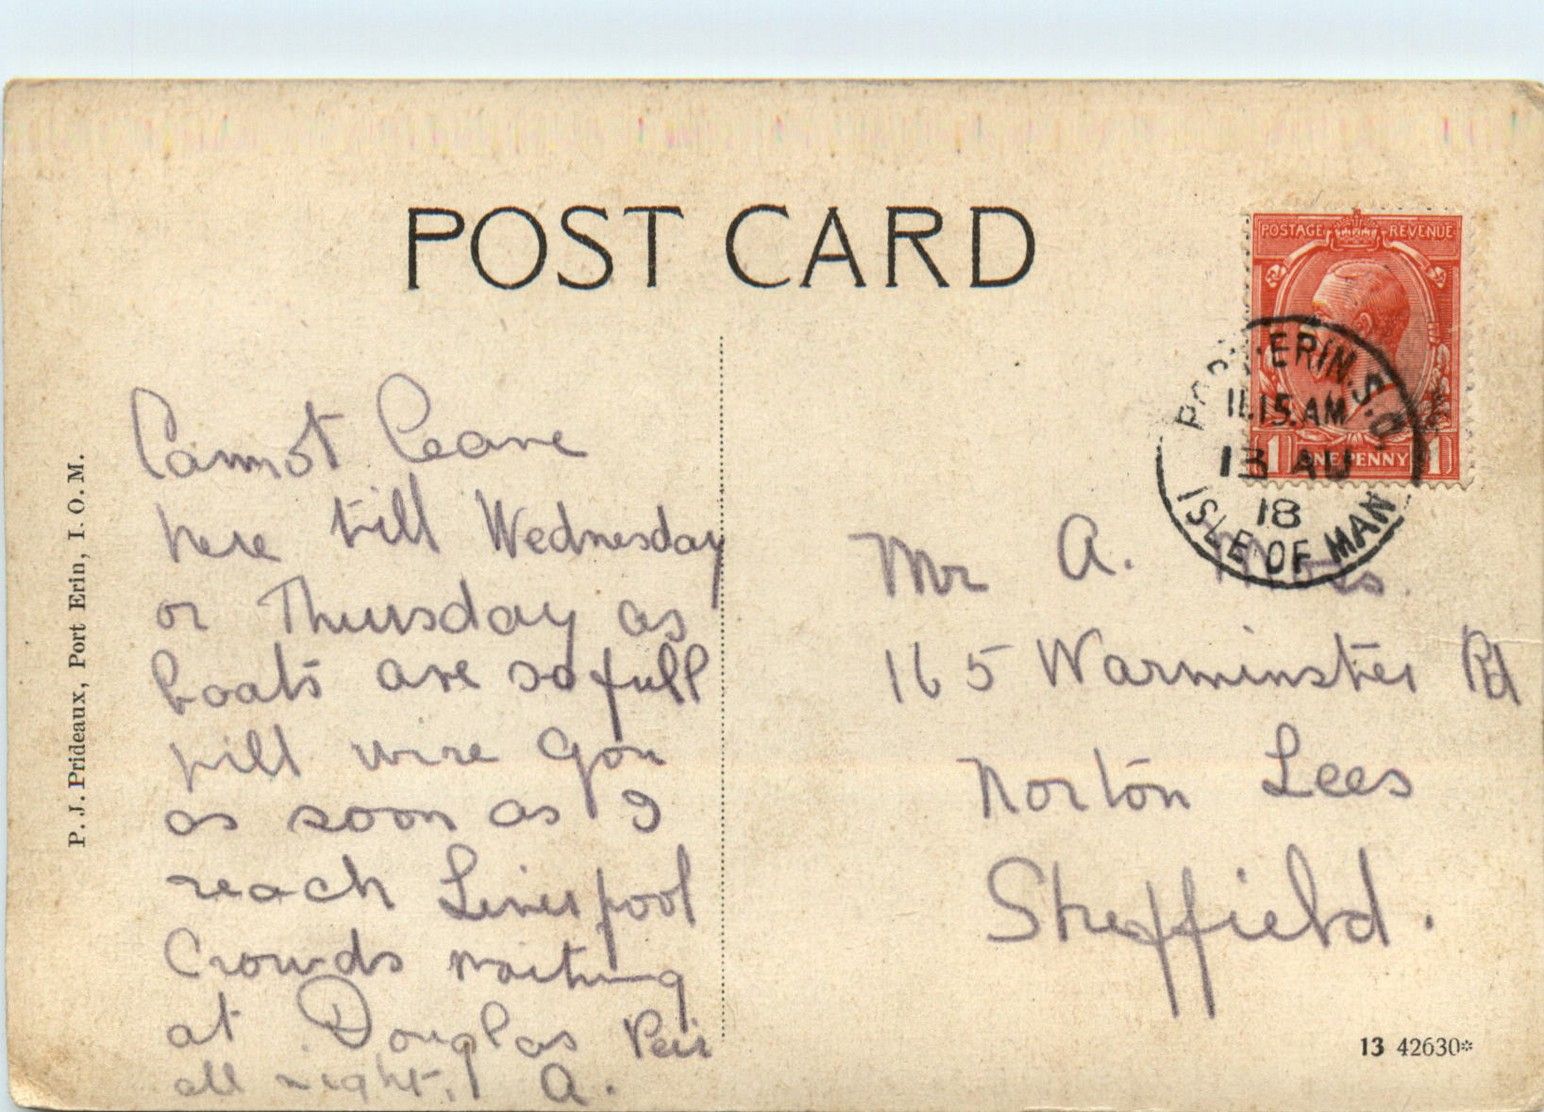 POST CARD
POSTAGE REVENUE
1 ONE PENNY 1
PORT ERIN. S.O
11.15. AM
13 AU
18
ISLE OF MAN
P. J. Prideaux, Port Erin, I. O. M.
Cannot leave
here till Wednesday
or Thursday as
boats are so full
will wire you
as soon as I
reach Liverpool
Crowds waiting
at Douglas Peir
all night. A.
Mr A.
165 Warminster Rd
Norton Lees
Sheffield.
13 42630*